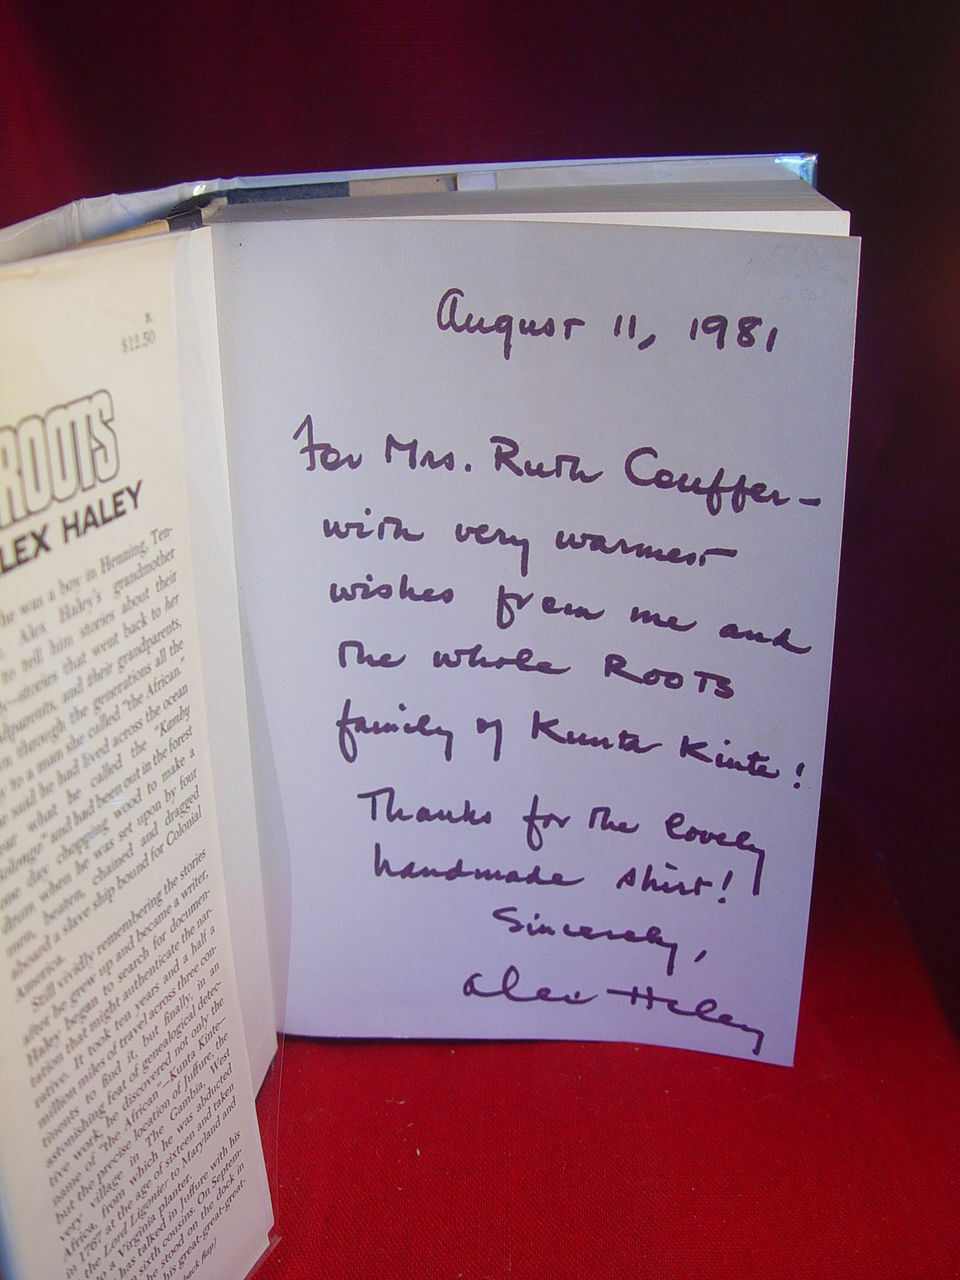 R
$12.50
ROOTS
LEX HALEY
he was a boy in Henning, Ten-
Alex Haley's grandmother
to tell him stories about their
—stories that went back to her
parents, and their grandparents,
through the generations all the
to a man she called "the African."
said he had lived across the ocean
what he called the "Kamby
olongo" and had been out in the forest
one day chopping wood to make a
drum when he was set upon by four
men, beaten, chained and dragged
aboard a slave ship bound for Colonial
America.
Still vividly remembering the stories
after he grew up and became a writer,
Haley began to search for documen-
tation that might authenticate the nar-
rative. It took ten years and a half a
million miles of travel across three con-
tinents to find it, but finally, in an
astonishing feat of genealogical detec-
tive work, he discovered not only the
name of "the African"—Kunta Kinte—
but the precise location of Juffure, the
very village in The Gambia, West
Africa, from which he was abducted
in 1767 at the age of sixteen and taken
the Lord Ligonier to Maryland and
to a Virginia planter.
has talked in Juffure with his
sixth cousins. On Septem-
he stood on the dock in
his great-great-great-
back flap)
August 11, 1981
For Mrs. Ruth Couffer—
with very warmest
wishes from me and
the whole ROOTS
family of Kunta Kinte!
Thanks for the lovely
handmade shirt!
Sincerely,
Alex Haley